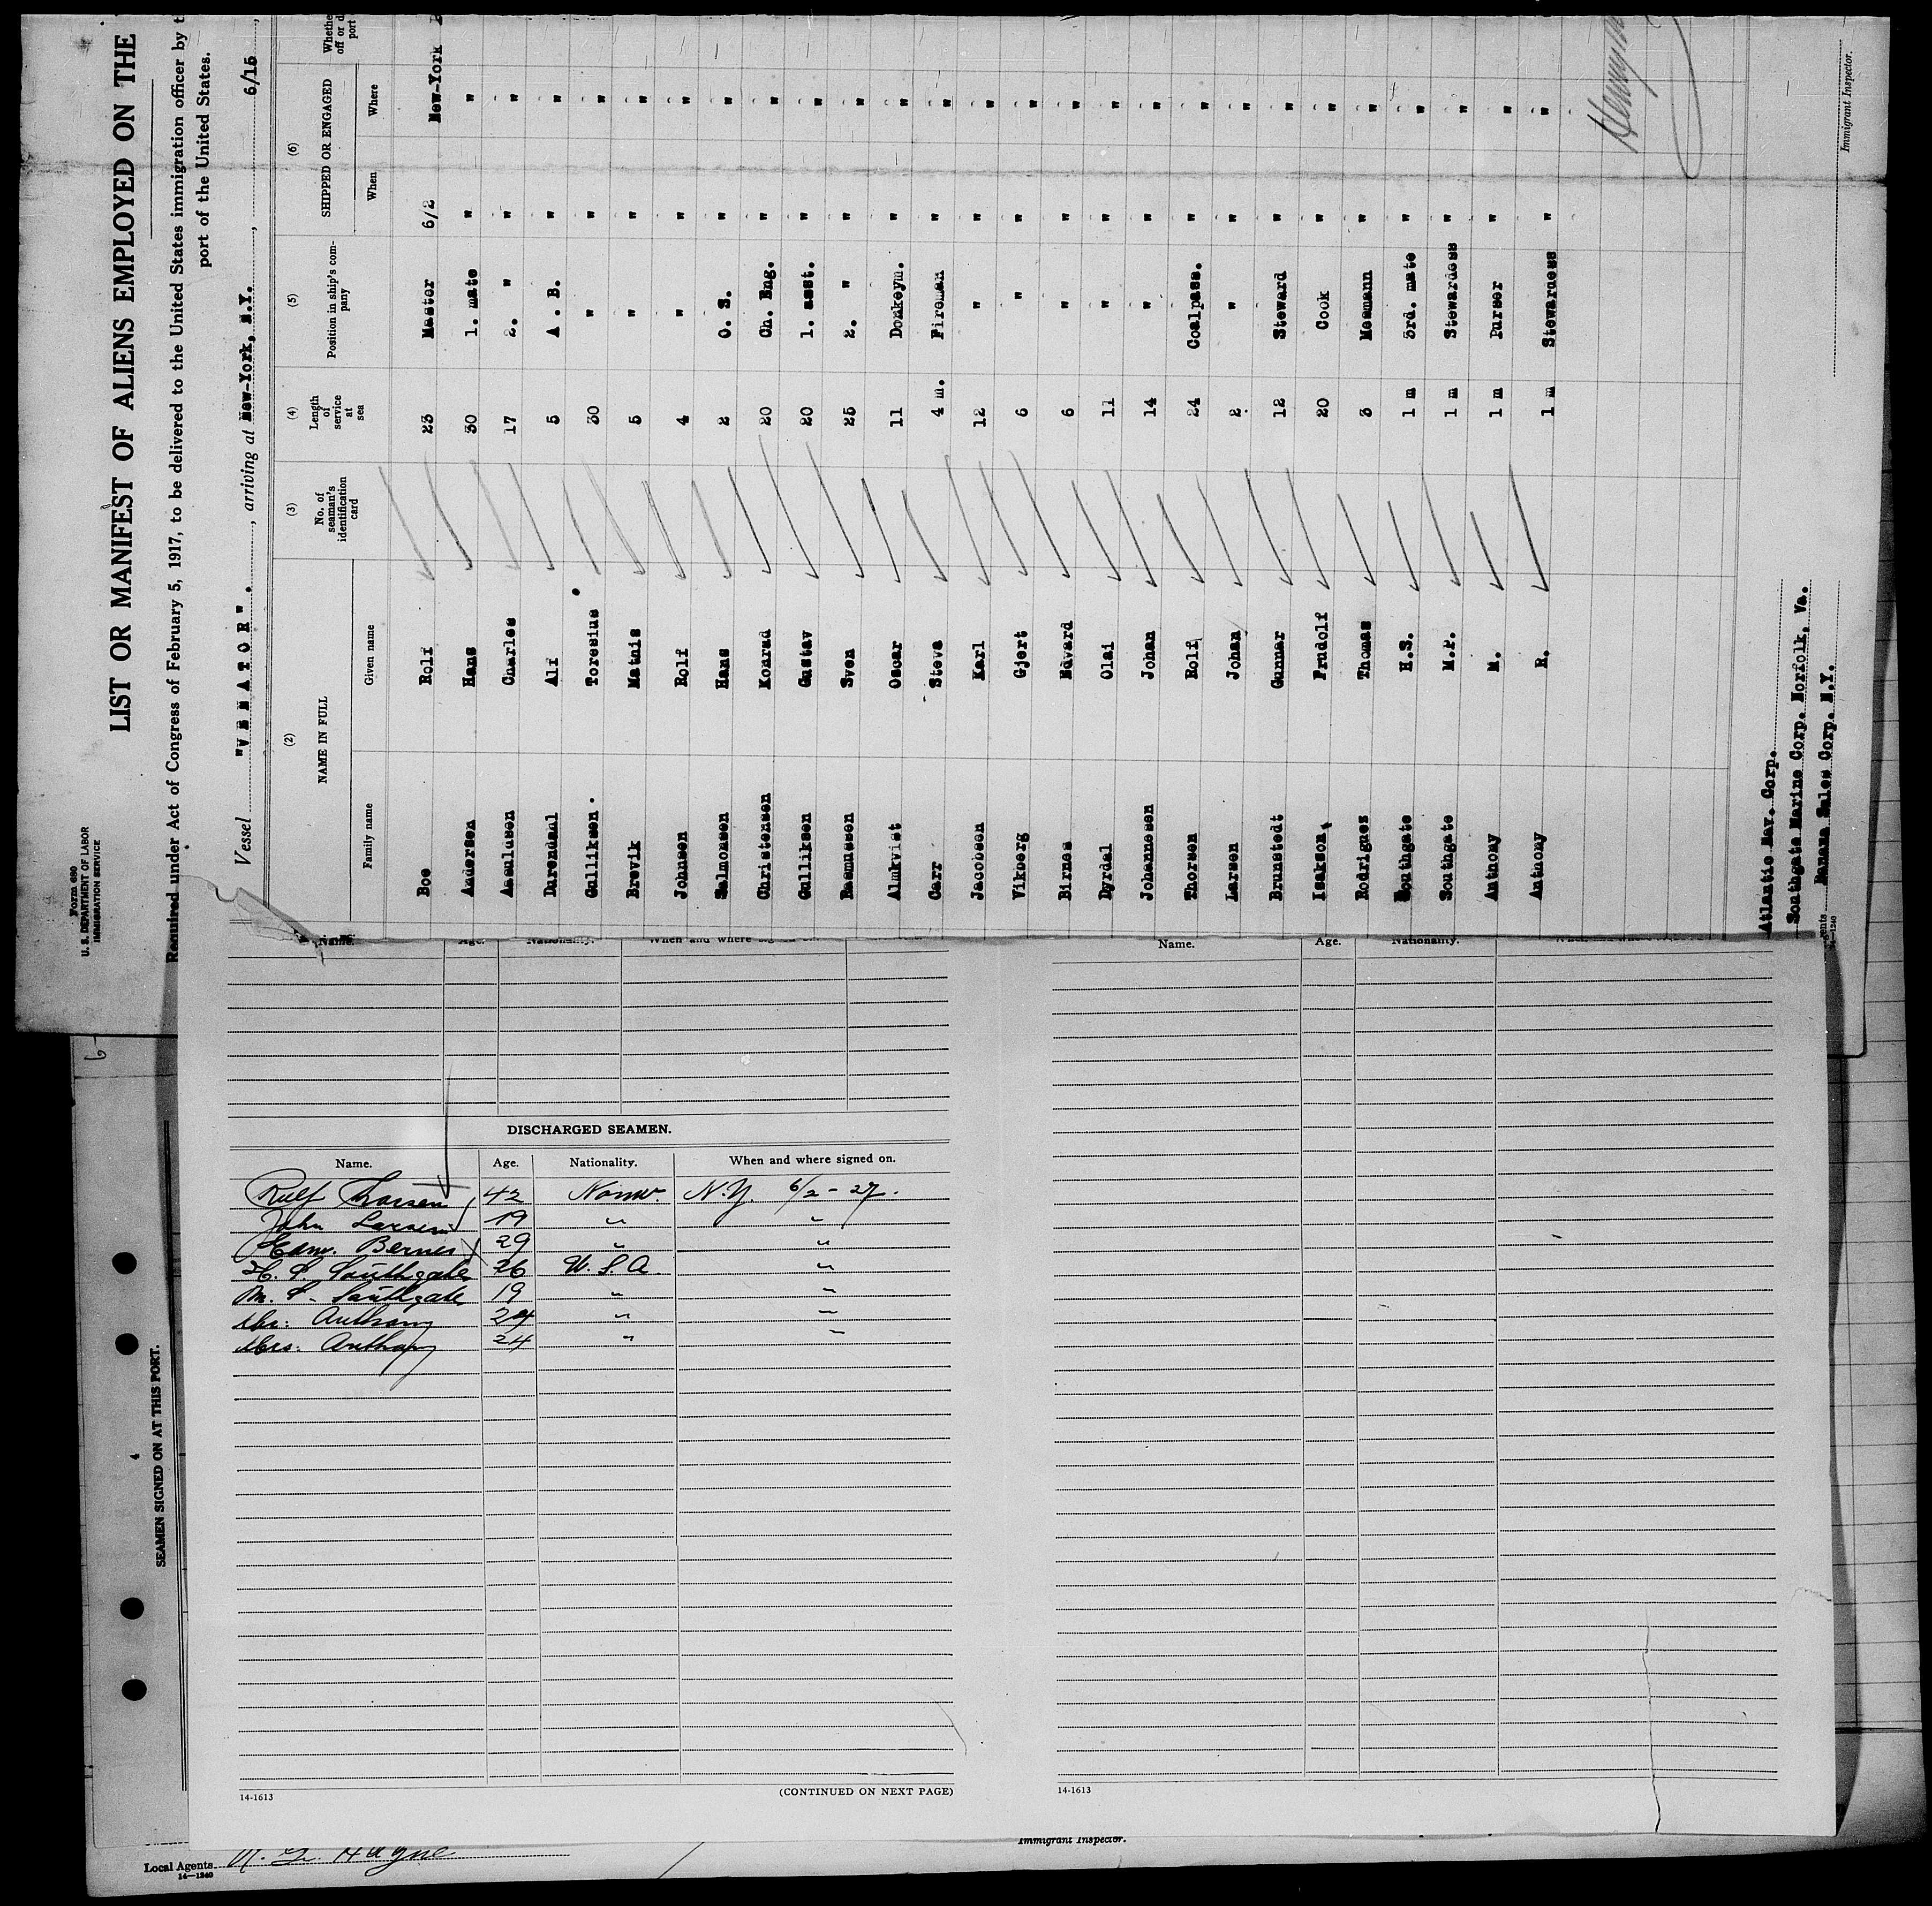 Form 680
U. S. DEPARTMENT OF LABOR
IMMIGRATION SERVICE
LIST OR MANIFEST OF ALIENS EMPLOYED ON THE
Required under Act of Congress of February 5, 1917, to be delivered to the United States immigration officer by
port of the United States.
Vessel "VENATOR"., arriving at New-York, N.Y., 6/15
(2) (3) (4) (5) (6)
NAME IN FULL No. of seaman's identification card Length of service at sea Position in ship's company SHIPPED OR ENGAGED
Family name Given name When Where
Boe Rolf 23 Master 6/2 New-York
Andersen Hans 30 1. mate " "
Aasulusen Charles 17 2. " " "
Darendaal Alf 5 A. B. " "
Gulliksen. Toresius 30 " " "
Brevik Mathis 5 " " "
Johnsen Rolf 4 " " "
Salmonsen Hans 2 O. S. " "
Christensen Konrad 20 Ch. Eng. " "
Gulliksen Gustav 20 1. asst. " "
Rasmussen Sven 25 2. " " "
Almkvist Oscar 11 Donkeym. " "
Carr Steva 4 m. Fireman " "
Jacobsen Karl 12 " " "
Vikberg Gjert 6 " " "
Birnes Edvard 6 " " "
Dyrdal Olai 11 " " "
Johannesen Johan 14 " " "
Thorsen Rolf 24 Coalpass. " "
Larsen Johan 2. " " "
Brunstedt Gunnar 12 Steward " "
Isakson, Frudolf 20 Cook " "
Rodriguez Thomas 3 Messmann " "
Southgate H.S. 1 m 3rd. mate " "
Southgate M.P. 1 m Stewardess " "
Anthony M. 1 m Purser " "
Anthony R. 1 m Stewardess " "
Atlantic Nav. Corp.
Southgate Marine Corp. Norfolk, Va.
Banana Sales Corp. N.Y.
Immigrant Inspector.
Name. Age. Nationality. When and where
Name. Age. Nationality.
DISCHARGED SEAMEN.
Name. Age. Nationality. When and where signed on.
Rulf Thorsen 42 Norw. N.Y. 6/2-27.
John Larsen 19 " "
Edw. Bernes 29 " "
H. S. Southgate 26 U.S.A "
M. S. Southgate 19 " "
Mr: Anthony 24 " "
Mrs: Anthony 24 " "
14-1613 (CONTINUED ON NEXT PAGE)
14-1613
4
SEAMEN SIGNED ON AT THIS PORT.
Immigrant Inspector.
Local Agents Hagne
14—1240